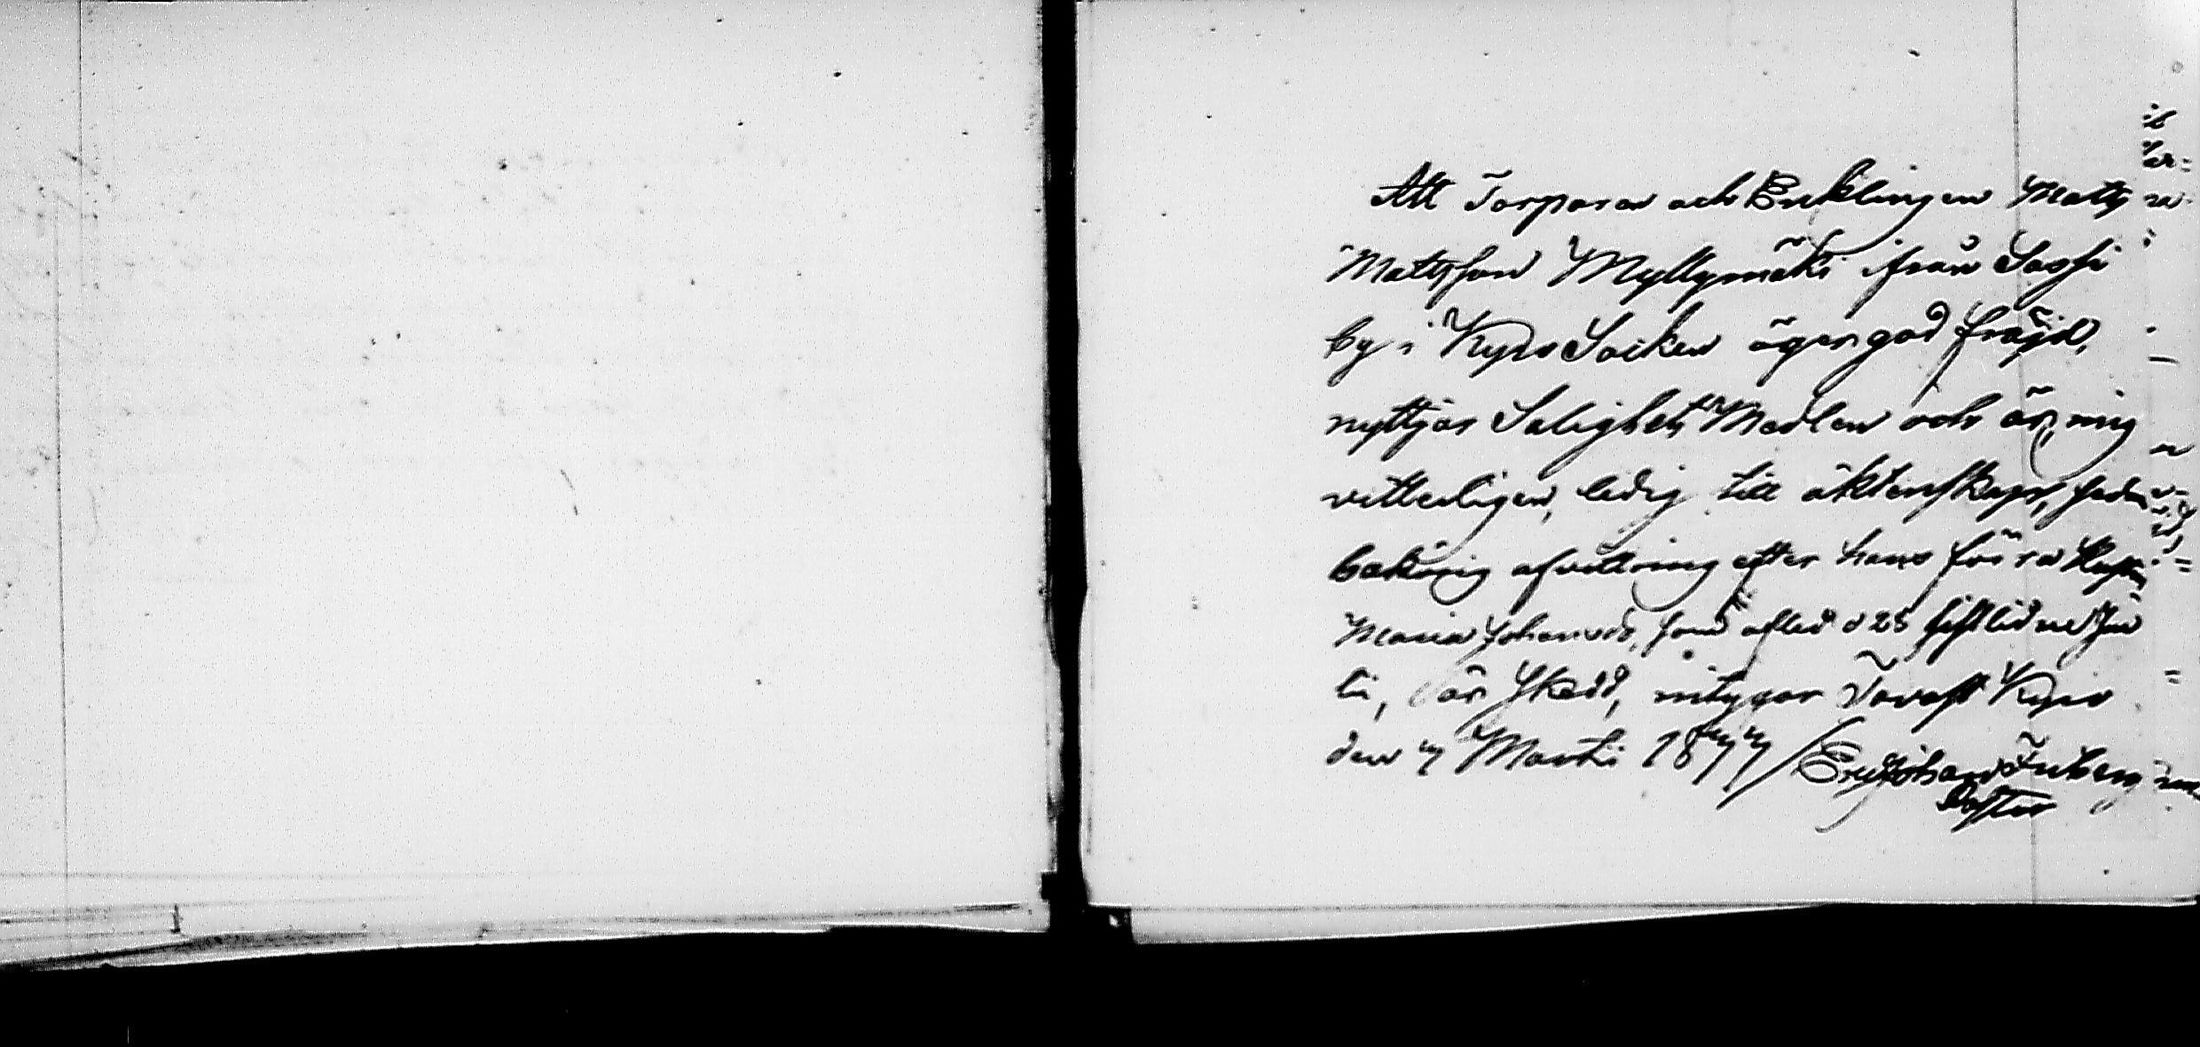 Att Torparen och Enklingen Matts
Mattsson Myllymäki ifrån Sassi
by i Kyro Socken äger god fräjd,
nyttjar Salighets Medlen och är, mig
vitterligen, ledig till äktenskap, sedan
behörig afvittring efter hans förra Hustru
Maria Johansdr, som afled d 28 sistlidne Ju
li, är skedd, intygar Tavast Kyro
den 7 Martii 1877 / Johan
Pastor